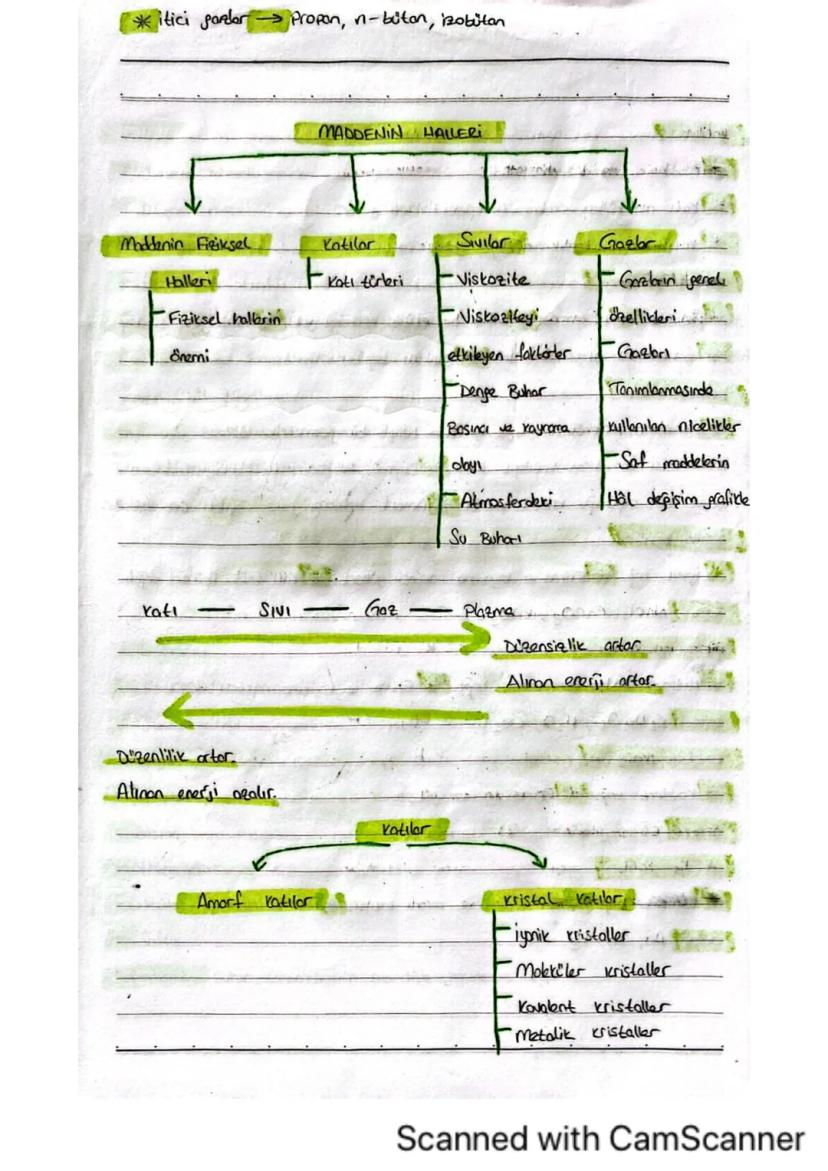 * İtici gazlar → Propan, n-bütan, izobütan
MADDENİN HALLERİ
Maddenin Fiziksel
Halleri
Fiziksel hallerin
önemi
Katılar
Katı türleri
Sıvılar
Viskozite
Viskoziteyi
etkileyen faktörler
Denge Buhar
Basıncı ve Kaynama
olayı
Atmosferdeki
Su Buharı
Gazlar
Gazların genel
özellikleri
Gazları
Tanımlanmasında
kullanılan nicelikler
Saf maddelerin
Hâl değişim grafikle
Katı — Sıvı — Gaz — Plazma
Düzensizlik artar.
Alınan enerji artar.
Düzenlilik artar.
Alınan enerji azalır.
Katılar
Amorf Katılar
Kristal Katılar
İyonik kristaller
Moleküler kristaller
Kovalent kristaller
Metalik kristaller
Scanned with CamScanner